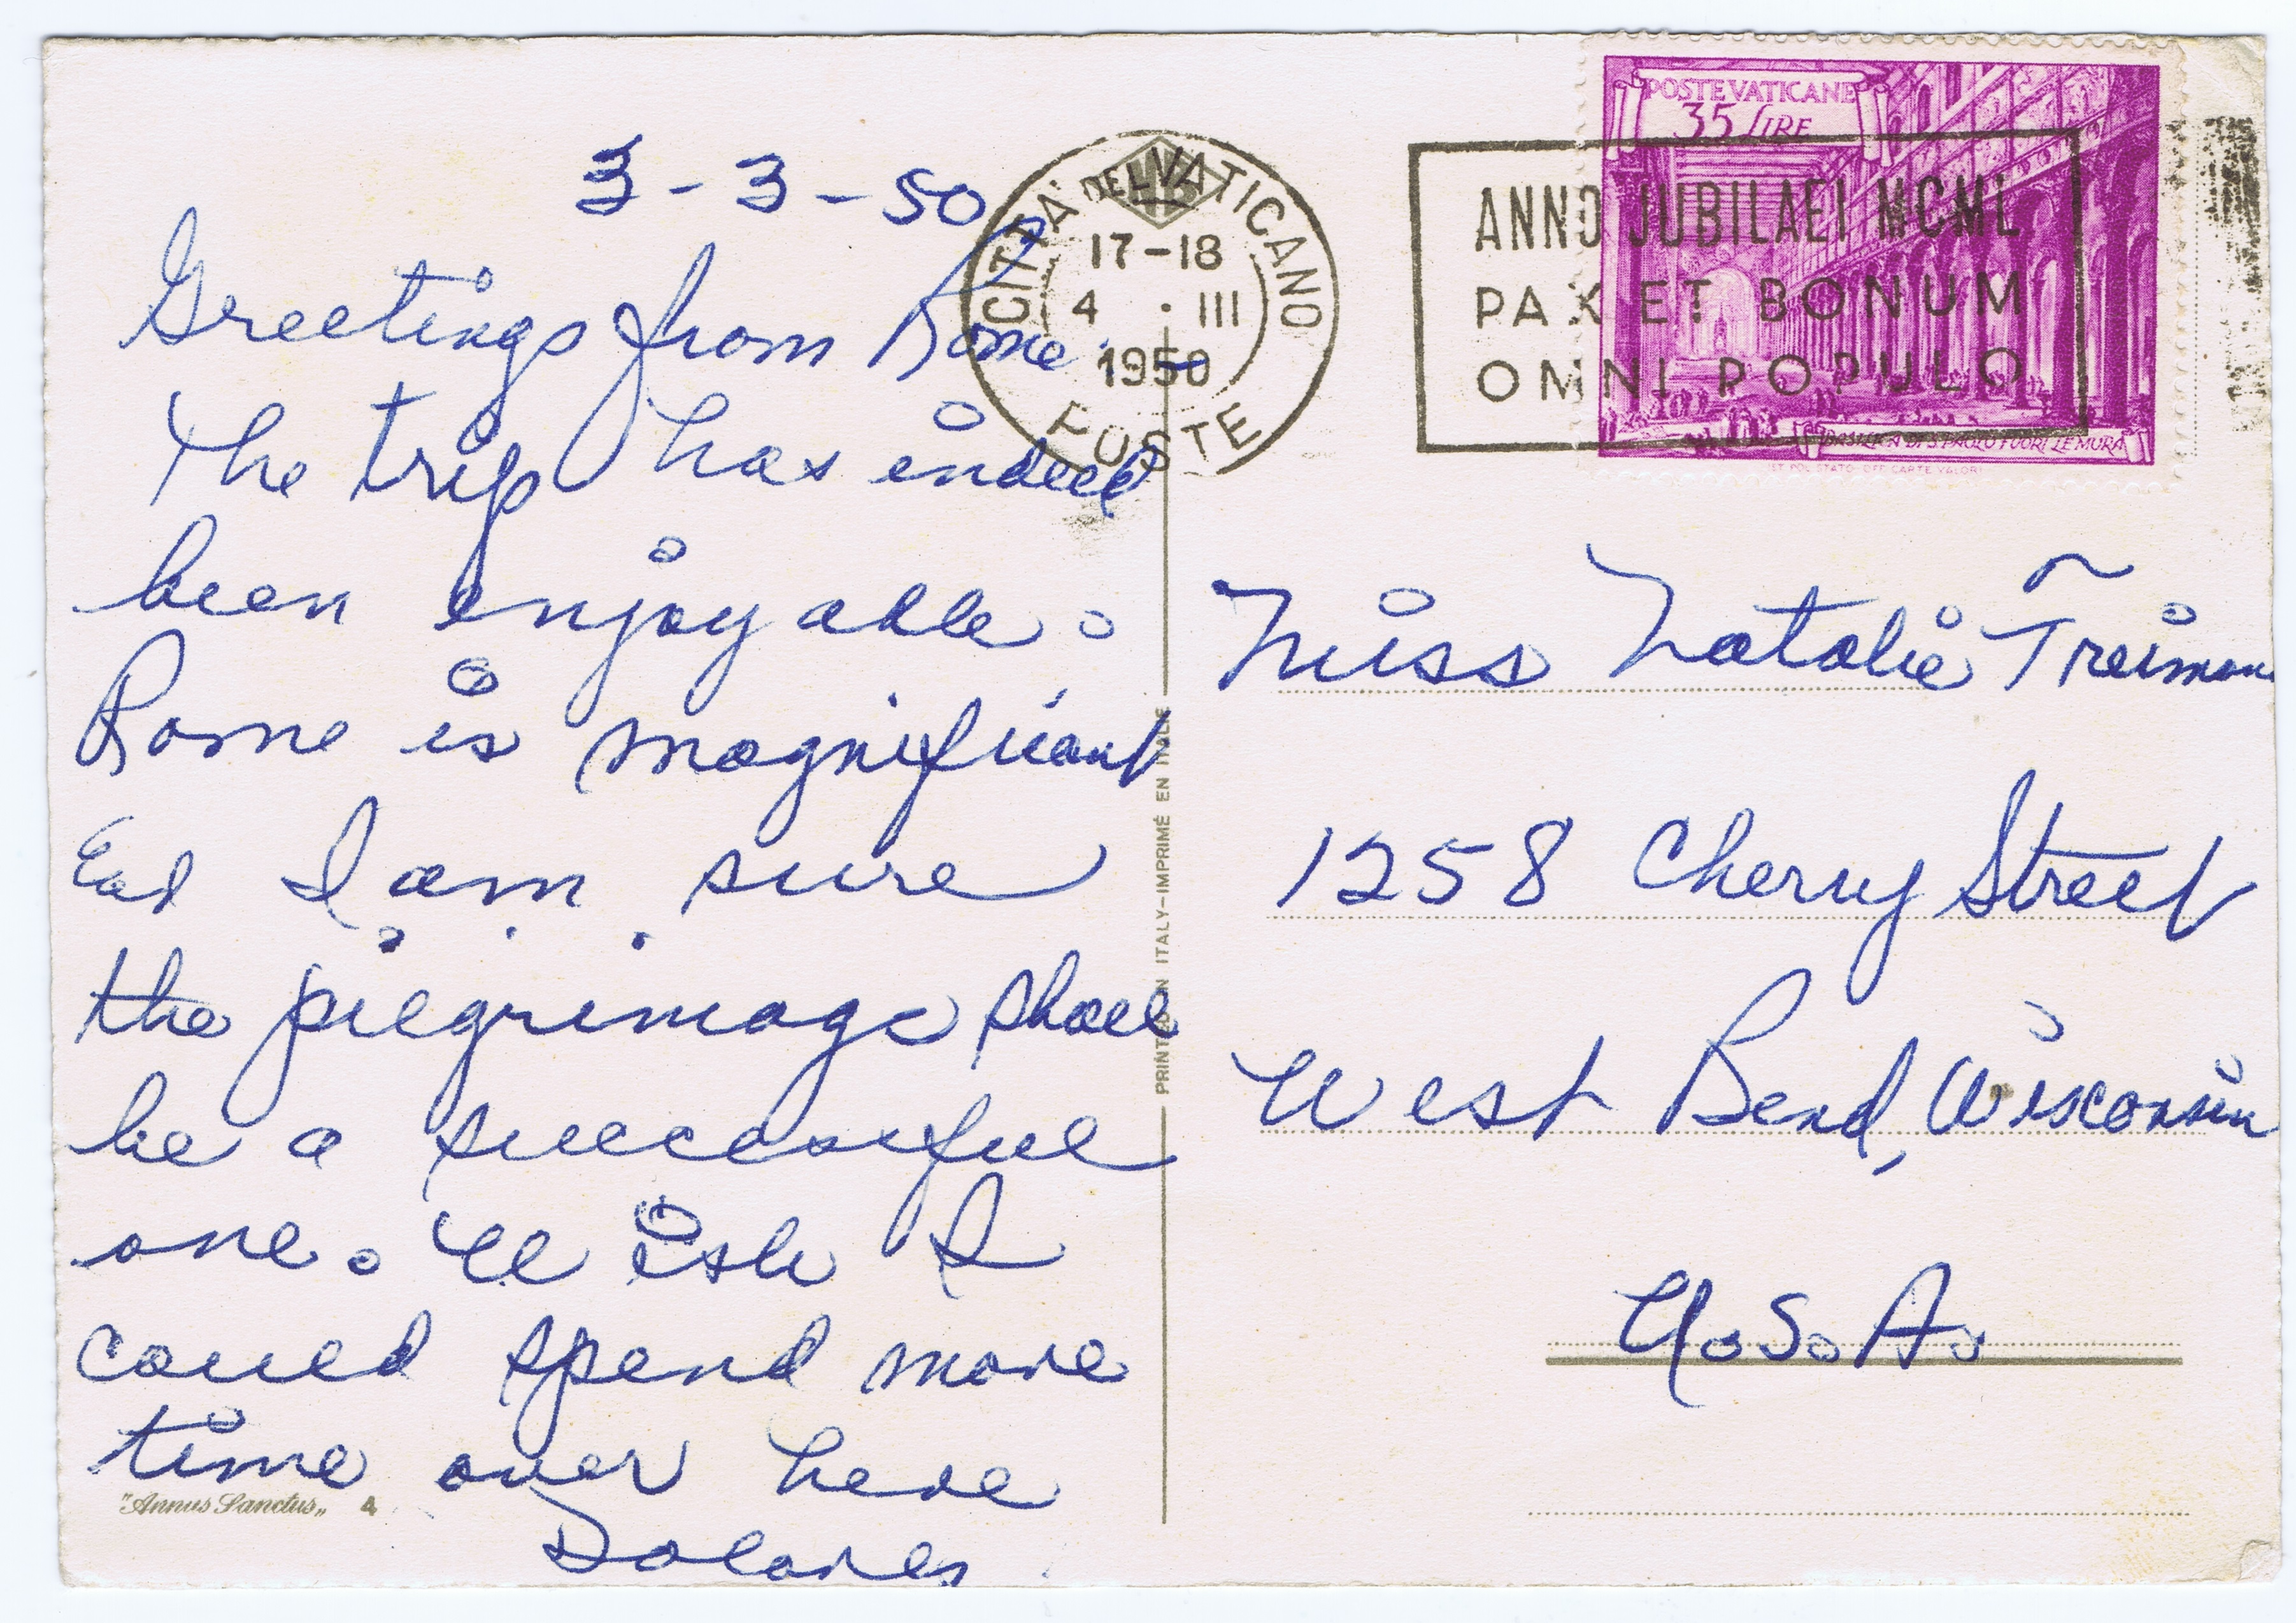 3-3-50
Greetings from Rome.
The trip has indeed
been enjoyable.
Rome is magnificant
End I am sure
the pilgrimage shall
be a successful
one. Wish I
could spend more
time over here
Dolores
"Annus Sanctus„ 4
CITTA' DEL VATICANO
17-18
4 · III
1950
POSTE
ANNO JUBILAEI MCML
PAX ET BONUM
OMNI POPULO
POSTE VATICANE
35 LIRE
BASILICA DI S. PAOLO FUORI LE MURA
IST. POL. STATO. OFF. CARTE VALORI
PRINTED IN ITALY-IMPRIMÉ EN ITALIE
Miss Natalie Treiman
1258 Cherry Street
West Bend, Wisconsin
U.S.A.